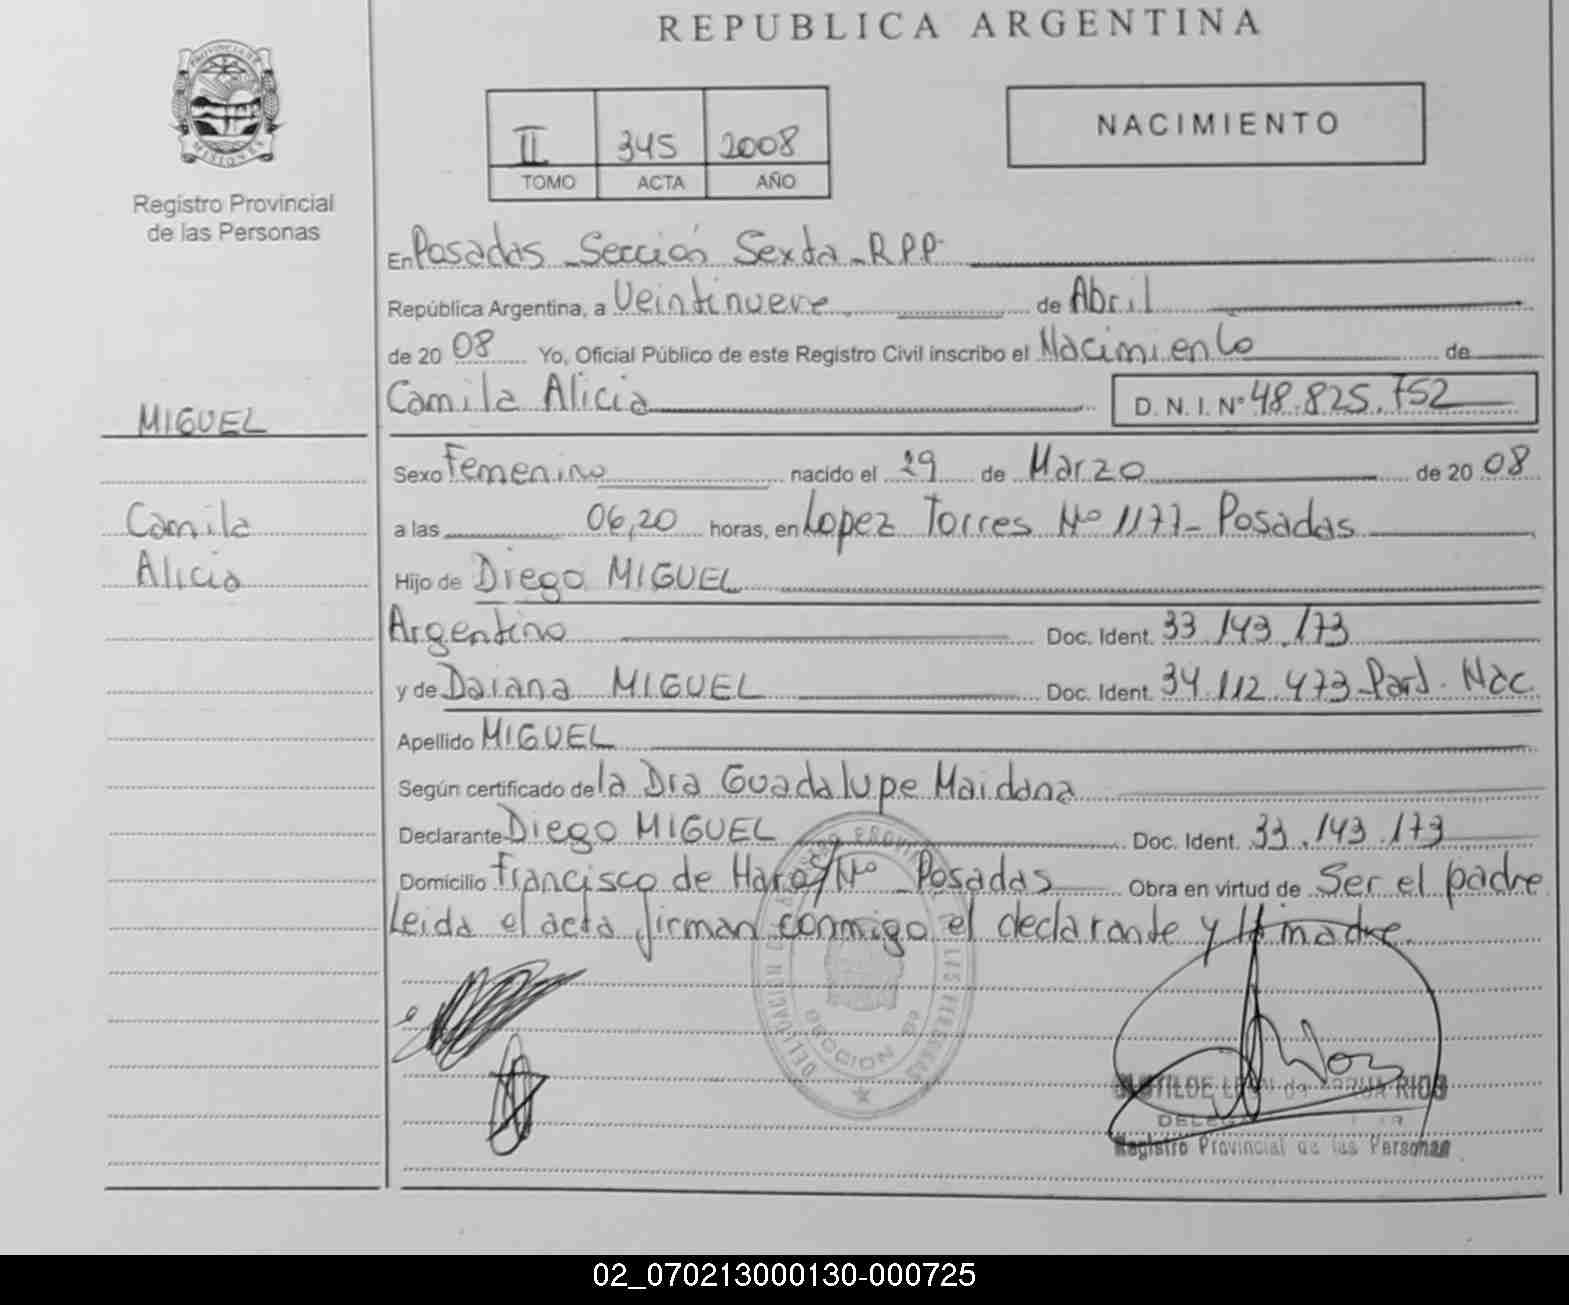 REPUBLICA ARGENTINA
PROVINCIA DE
MISIONES
Registro Provincial
de las Personas
II 345 2008
TOMO ACTA AÑO
NACIMIENTO
En Posadas - Sección Sexta - R.P.P.
República Argentina, a Veintinueve de Abril
de 20 08 Yo, Oficial Público de este Registro Civil inscribo el Nacimiento de
Camila Alicia D. N. I. N° 48.825.752
MIGUEL
Sexo Femenino nacido el 29 de Marzo de 20 08
Camila
a las 06,20 horas, en Lopez Torres Nº 1177 - Posadas
Alicia
Hijo de Diego MIGUEL
Argentino Doc. Ident. 33.143.173
y de Daiana MIGUEL Doc. Ident. 34.112.473 - Part. Nac
Apellido MIGUEL
Según certificado de la Dra Guadalupe Maidana
Declarante Diego MIGUEL Doc. Ident. 33.143.173
Domicilio Francisco de Haro S/Nº - Posadas Obra en virtud de Ser el padre
Leida el acta firman conmigo el declarante y la madre
SECCION 6ª
RIOS
Registro Provincial de las Personas
02_070213000130-000725